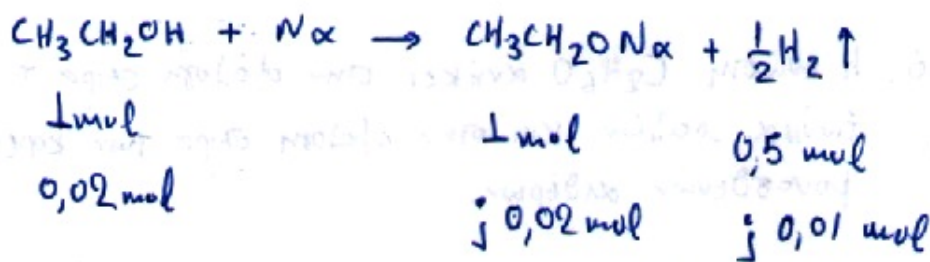 CH₃CH₂OH + Nα → CH₃CH₂ONα + ½H₂ ↑
1mol 1mol 0,5 mol
0,02 mol j 0,02 mol j 0,01 mol